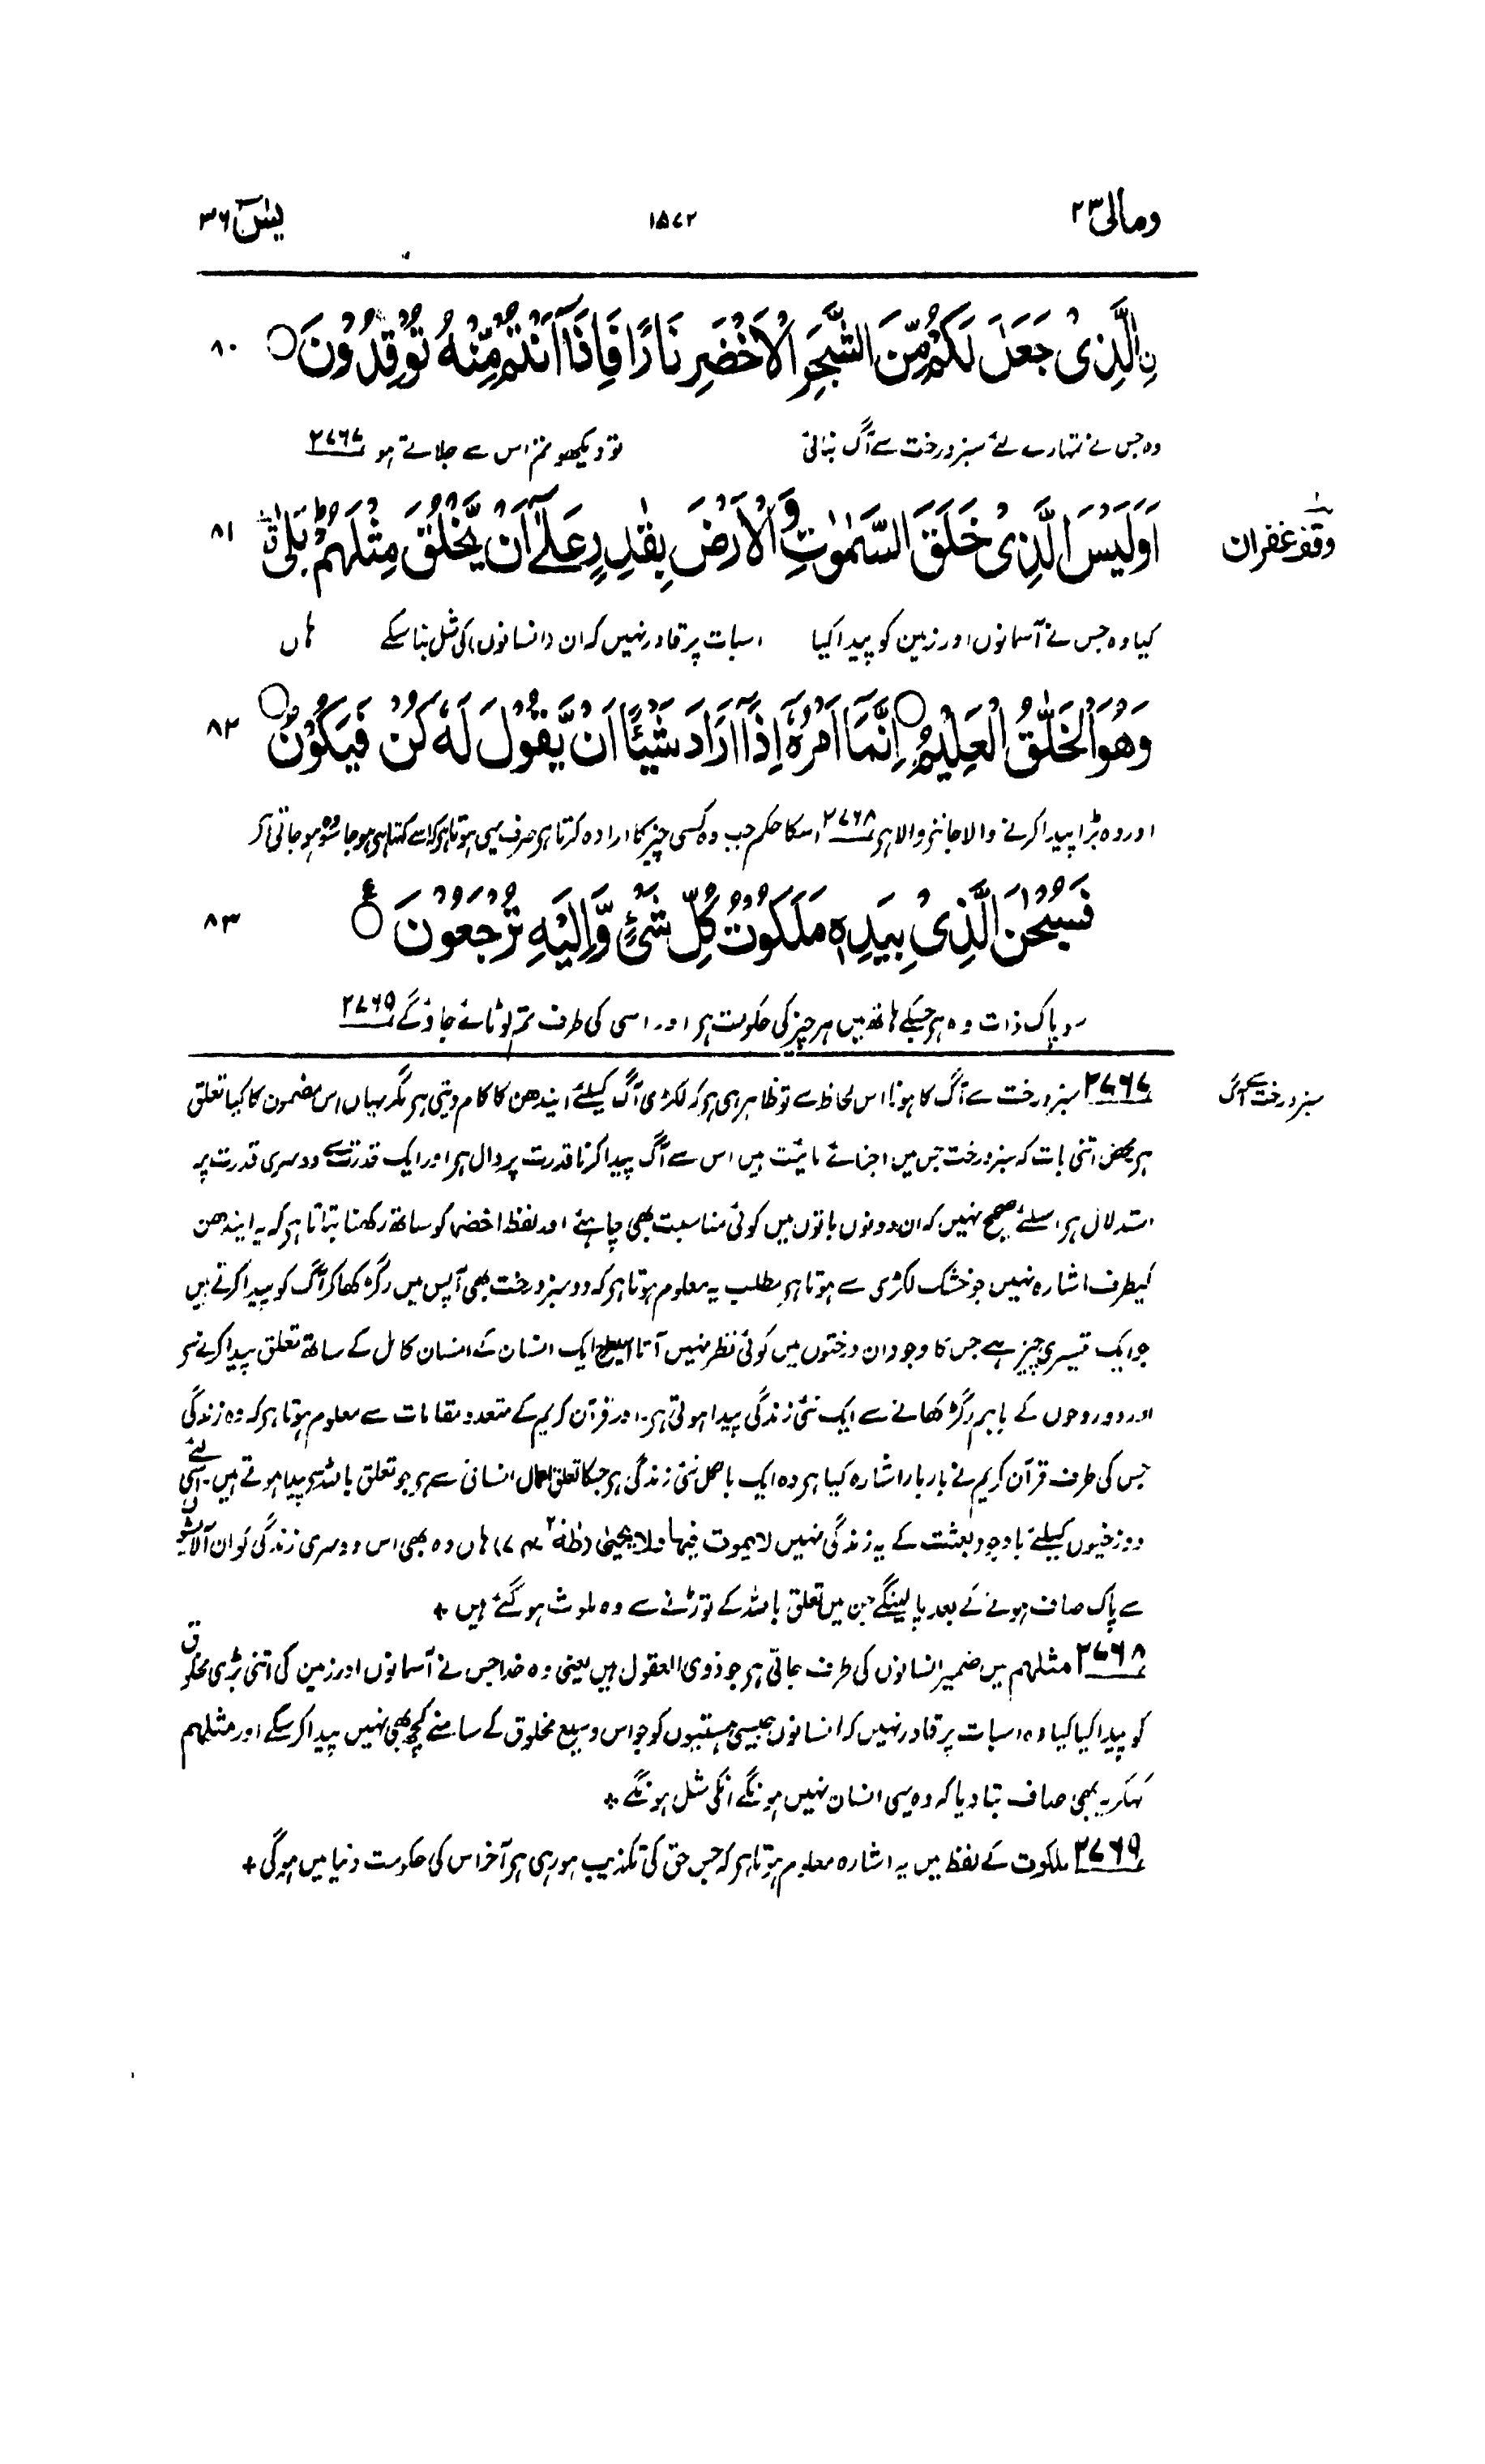 ومالی ۲۳ ۱۵۷۲ یٰسٓ ۳۶
ۣالَّذِیْ جَعَلَ لَكُمْ مِّنَ الشَّجَرِ الْاَخْضَرِ نَارًا فَاِذَاۤ اَنْتُمْ مِّنْهُ تُوْقِدُوْنَ ۸۰
وہ جس نے تمہارے لئے سبز درخت سے آگ بنائی تو دیکھو تم اس سے جلاتے ہو ۲۷۶۷
اَوَلَیْسَ الَّذِیْ خَلَقَ السَّمٰوٰتِ وَ الْاَرْضَ بِقٰدِرٍ عَلٰۤی اَنْ یَّخْلُقَ مِثْلَهُمْ ؕ بَلٰی ۸۱
وقف غفران
کیا وہ جس نے آسمانوں اور زمین کو پیدا کیا اسبات پر قادر نہیں کہ ان (انسانوں) کی مثل بنا سکے ہاں
وَ هُوَ الْخَلّٰقُ الْعَلِیْمُ اِنَّمَاۤ اَمْرُهٗۤ اِذَاۤ اَرَادَ شَیْـًٔا اَنْ یَّقُوْلَ لَهٗ كُنْ فَیَكُوْنُ ۸۲
اور وہ بڑا پیدا کرنے والا جاننے والا ہے ۲۷۶۸ اسکا حکم جب وہ کسی چیز کا ارادہ کرتا ہے صرف یہی ہوتا ہے کہ اسے کہتا ہے ہو جا سو وہ ہو جاتی ہے
فَسُبْحٰنَ الَّذِیْ بِیَدِهٖ مَلَكُوْتُ كُلِّ شَیْءٍ وَّ اِلَیْهِ تُرْجَعُوْنَ ع ۸۳
سو پاک ذات وہ ہے جسکے ہاتھ میں ہر چیز کی حکومت ہے اور اسی کی طرف تم لوٹائے جاؤ گے ۲۷۶۹
سبز درخت سے آگ
۲۷۶۷ سبز درخت سے آگ کا ہونا اس لحاظ سے تو ظاہر ہی ہے کہ لکڑی آگ کیلئے ایندھن کا کام دیتی ہے مگر یہاں اس مضمون کا کیا تعلق
ہے محض اتنی بات کہ سبز درخت جس میں اجزائے مائیت ہیں اس سے آگ پیدا کرنا قدرت پر دال ہے اور ایک قدرت سے دوسری قدرت پر
استدلال ہے اسلئے صحیح نہیں کہ ان دونوں باتوں میں کوئی مناسبت بھی چاہئے اور لفظ اخضر کو ساتھ رکھنا بتاتا ہے کہ یہ ایندھن
کیطرف اشارہ نہیں جو خشک لکڑی سے ہوتا ہے مطلب یہ معلوم ہوتا ہے کہ دو سبز درخت بھی آپس میں رگڑ کھا کر آگ کو پیدا کرتے ہیں
جو ایک تیسری چیز ہے جس کا وجود ان درختوں میں کوئی نظر نہیں آتا اسیطرح ایک انسان کے انسان کامل کے ساتھ تعلق پیدا کرنے سے
اور دو روحوں کے باہم رگڑ کھانے سے ایک نئی زندگی پیدا ہوتی ہے۔ اور قرآن کریم کے متعدد مقامات سے معلوم ہوتا ہے کہ وہ زندگی
جس کی طرف قرآن کریم نے بار بار اشارہ کیا ہے وہ ایک بالکل نئی زندگی ہے جسکا تعلق اعمال انسانی سے ہے جو تعلق باللہ سے پیدا ہوتے ہیں۔ اسی لئے
دوزخیوں کیلئے باوجود بعثت کے یہ زندگی نہیں لا یموت فیہا ولا یحییٰ (طٰہٰ ۲۰، ۷۴) ہاں وہ بھی اس دوسری زندگی کو ان آلائشوں
سے پاک صاف ہونے کے بعد پا لینگے جن میں تعلق باللہ کے توڑنے سے وہ ملوث ہو گئے ہیں +
۲۷۶۸ مثلہم میں ضمیر انسانوں کی طرف جاتی ہے جو ذوی العقول ہیں یعنی وہ خدا جس نے آسمانوں اور زمین کی اتنی بڑی مخلوق
کو پیدا کیا کیا وہ اسبات پر قادر نہیں کہ انسانوں جیسی ہستیوں کو جو اس وسیع مخلوق کے سامنے کچھ بھی نہیں پیدا کر سکے اور مثلہم
کہکر یہ بھی صاف بتا دیا کہ وہ یہی انسان نہیں ہونگے انکی مثل ہونگے +
۲۷۶۹ ملکوت کے لفظ میں یہ اشارہ معلوم ہوتا ہے کہ جس حق کی تکذیب ہو رہی ہے آخر اس کی حکومت دنیا میں ہوگی +